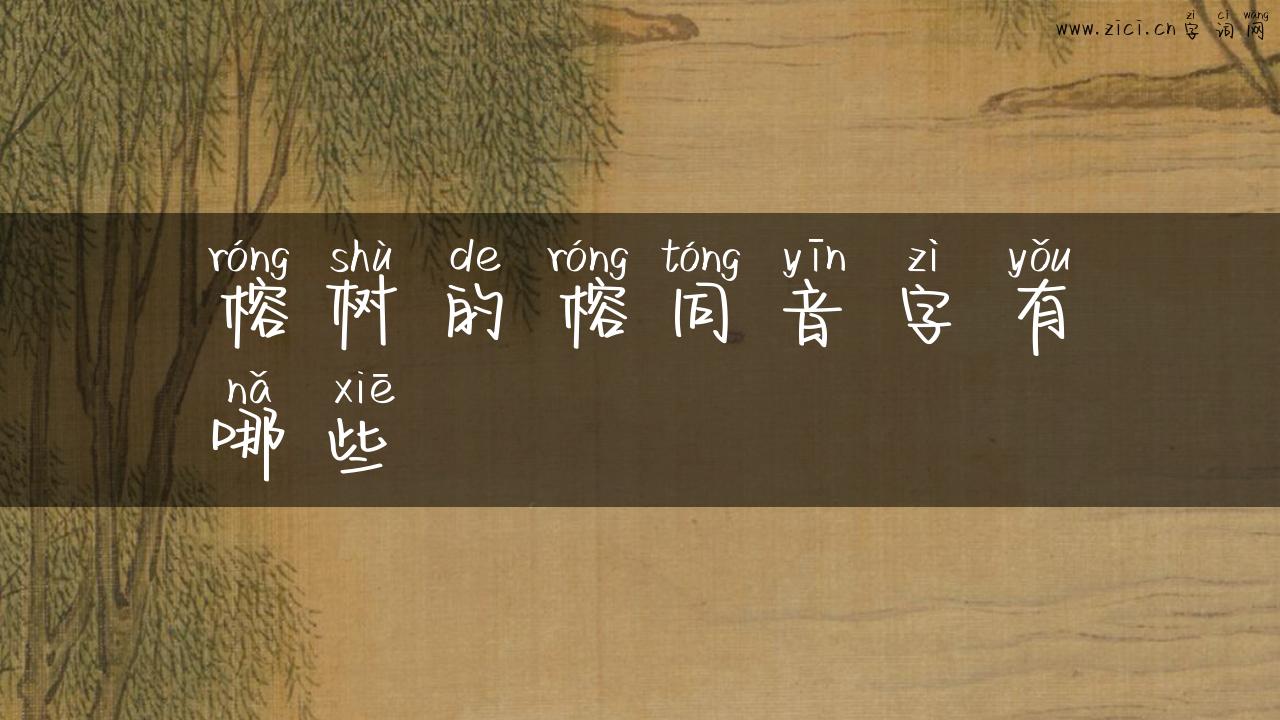 zì cí wǎng
www.zici.cn 字 词 网
róng shù de róng tóng yīn zì yǒu
榕 树 的 榕 同 音 字 有
nǎ xiē
哪 些